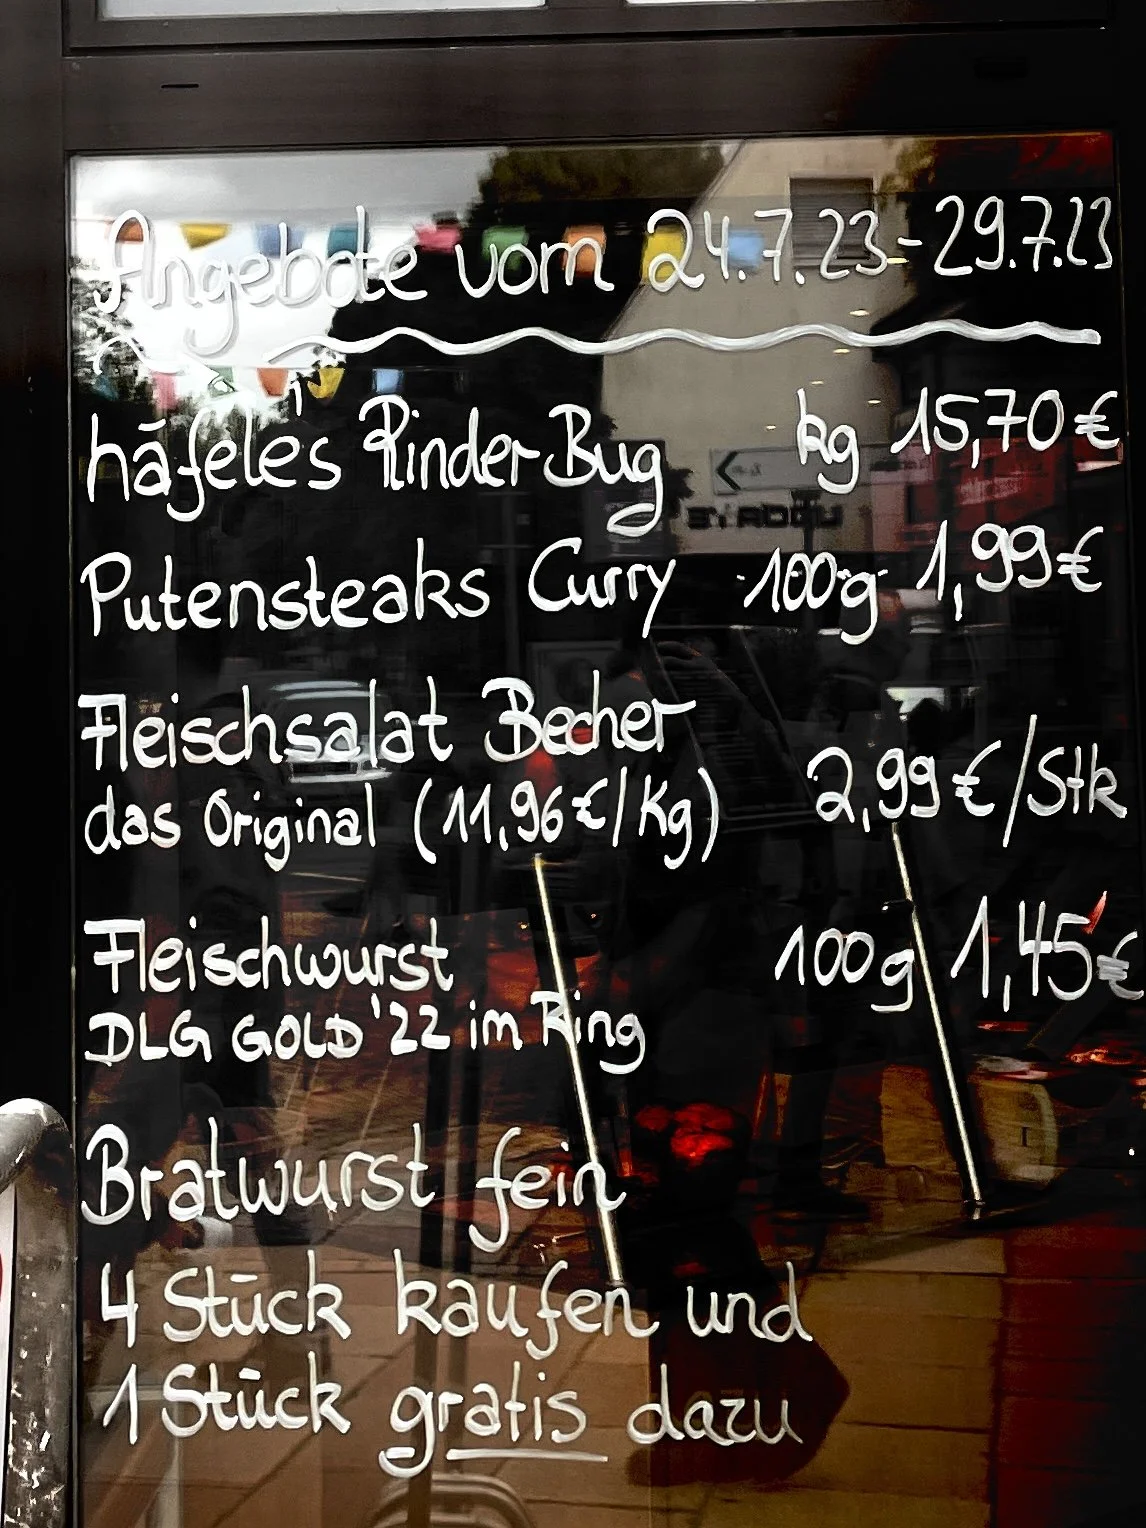 Angebote vom 24.7.23-29.7.23
häfele's Rinder Bug kg 15,70€
Putensteaks Curry 100g 1,99€
Fleischsalat Becher
das Original (11,96€/Kg) 2,99€/Stk
Fleischwurst 100g 1,45€
DLG GOLD '22 im Ring
Bratwurst fein
4 Stück kaufen und
1 Stück gratis dazu